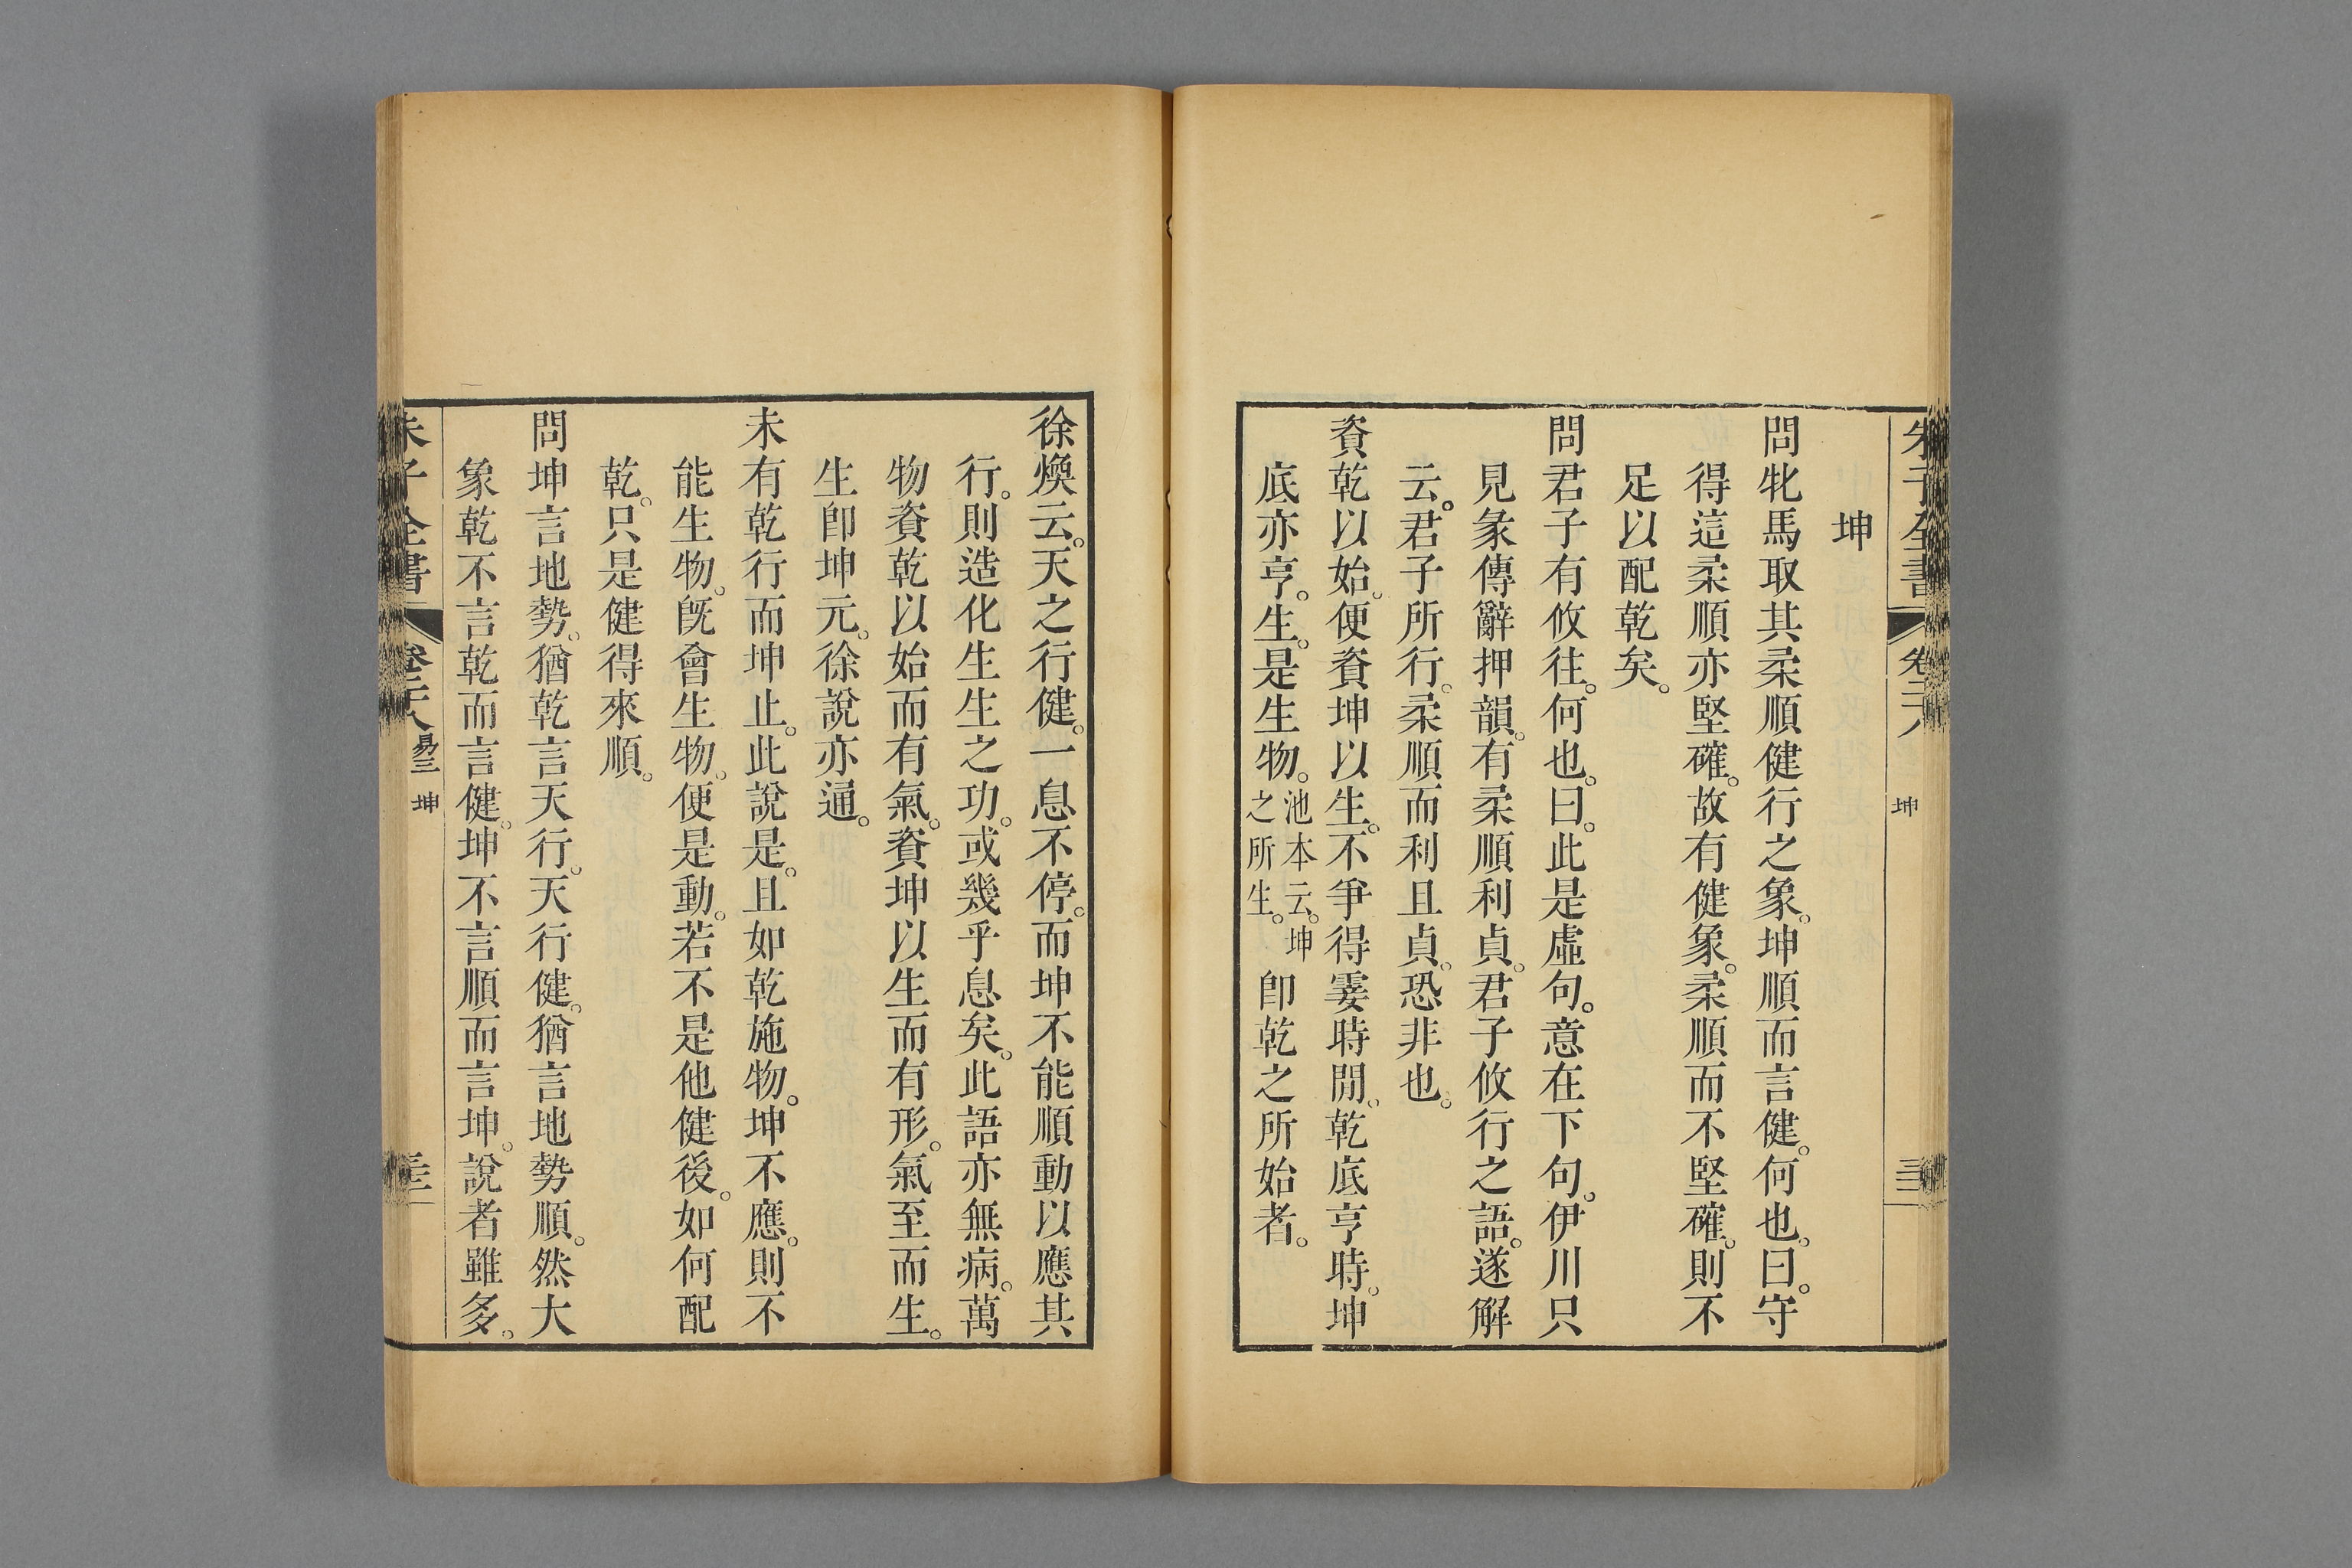 朱子全書 卷二十八 坤
坤
問牝馬取其柔順健行之象。坤順而言健。何也。曰。守
得這柔順亦堅確。故有健象。柔順而不堅確。則不
足以配乾矣。
問君子有攸往。何也。曰。此是虛句。意在下句。伊川只
見彖傳辭押韻。有柔順利貞。君子攸行之語。遂解
云。君子所行。柔順而利且貞。恐非也。
資乾以始。便資坤以生。不爭得霎時閒。乾底亨時。坤
底亦亨。生。是生物。池本云。坤之所生。卽乾之所始者。
徐煥云。天之行健。一息不停。而坤不能順動以應其
行。則造化生生之功。或幾乎息矣。此語亦無病。萬
物資乾以始而有氣。資坤以生而有形。氣至而生。
生卽坤元。徐說亦通。
未有乾行而坤止。此說是。且如乾施物。坤不應。則不
能生物。旣會生物。便是動。若不是他健後。如何配
乾。只是健得來順。
問坤言地勢。猶乾言天行。天行健。猶言地勢順。然大
象乾不言乾而言健。坤不言順而言坤。說者雖多。
朱子全書 卷二十八 易三 坤